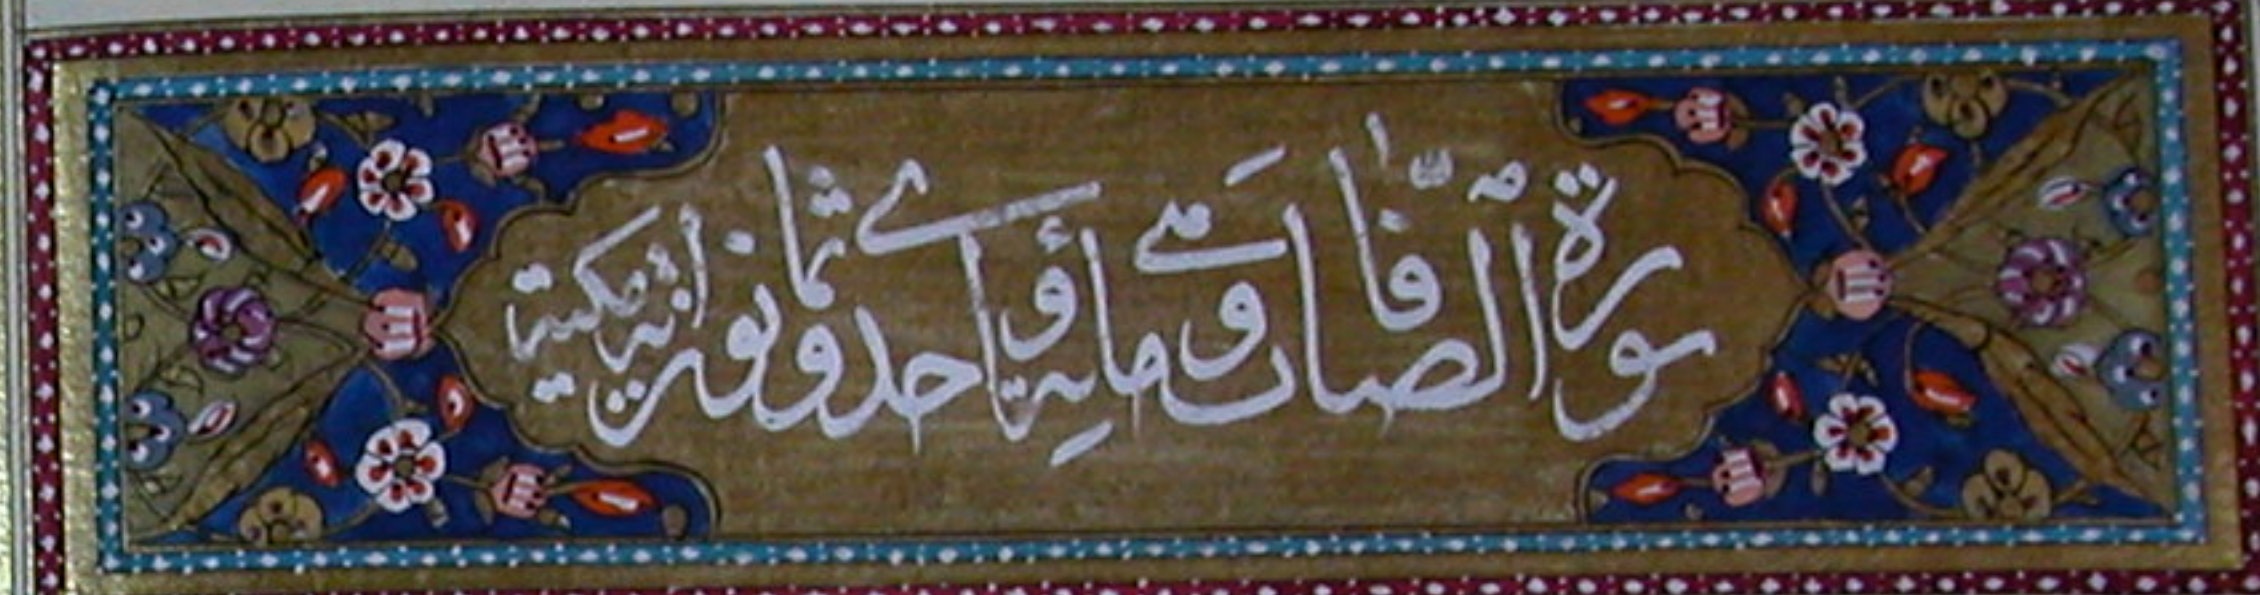 سورة الصّافات وهى مائة واحدى وثمانون اية مكية